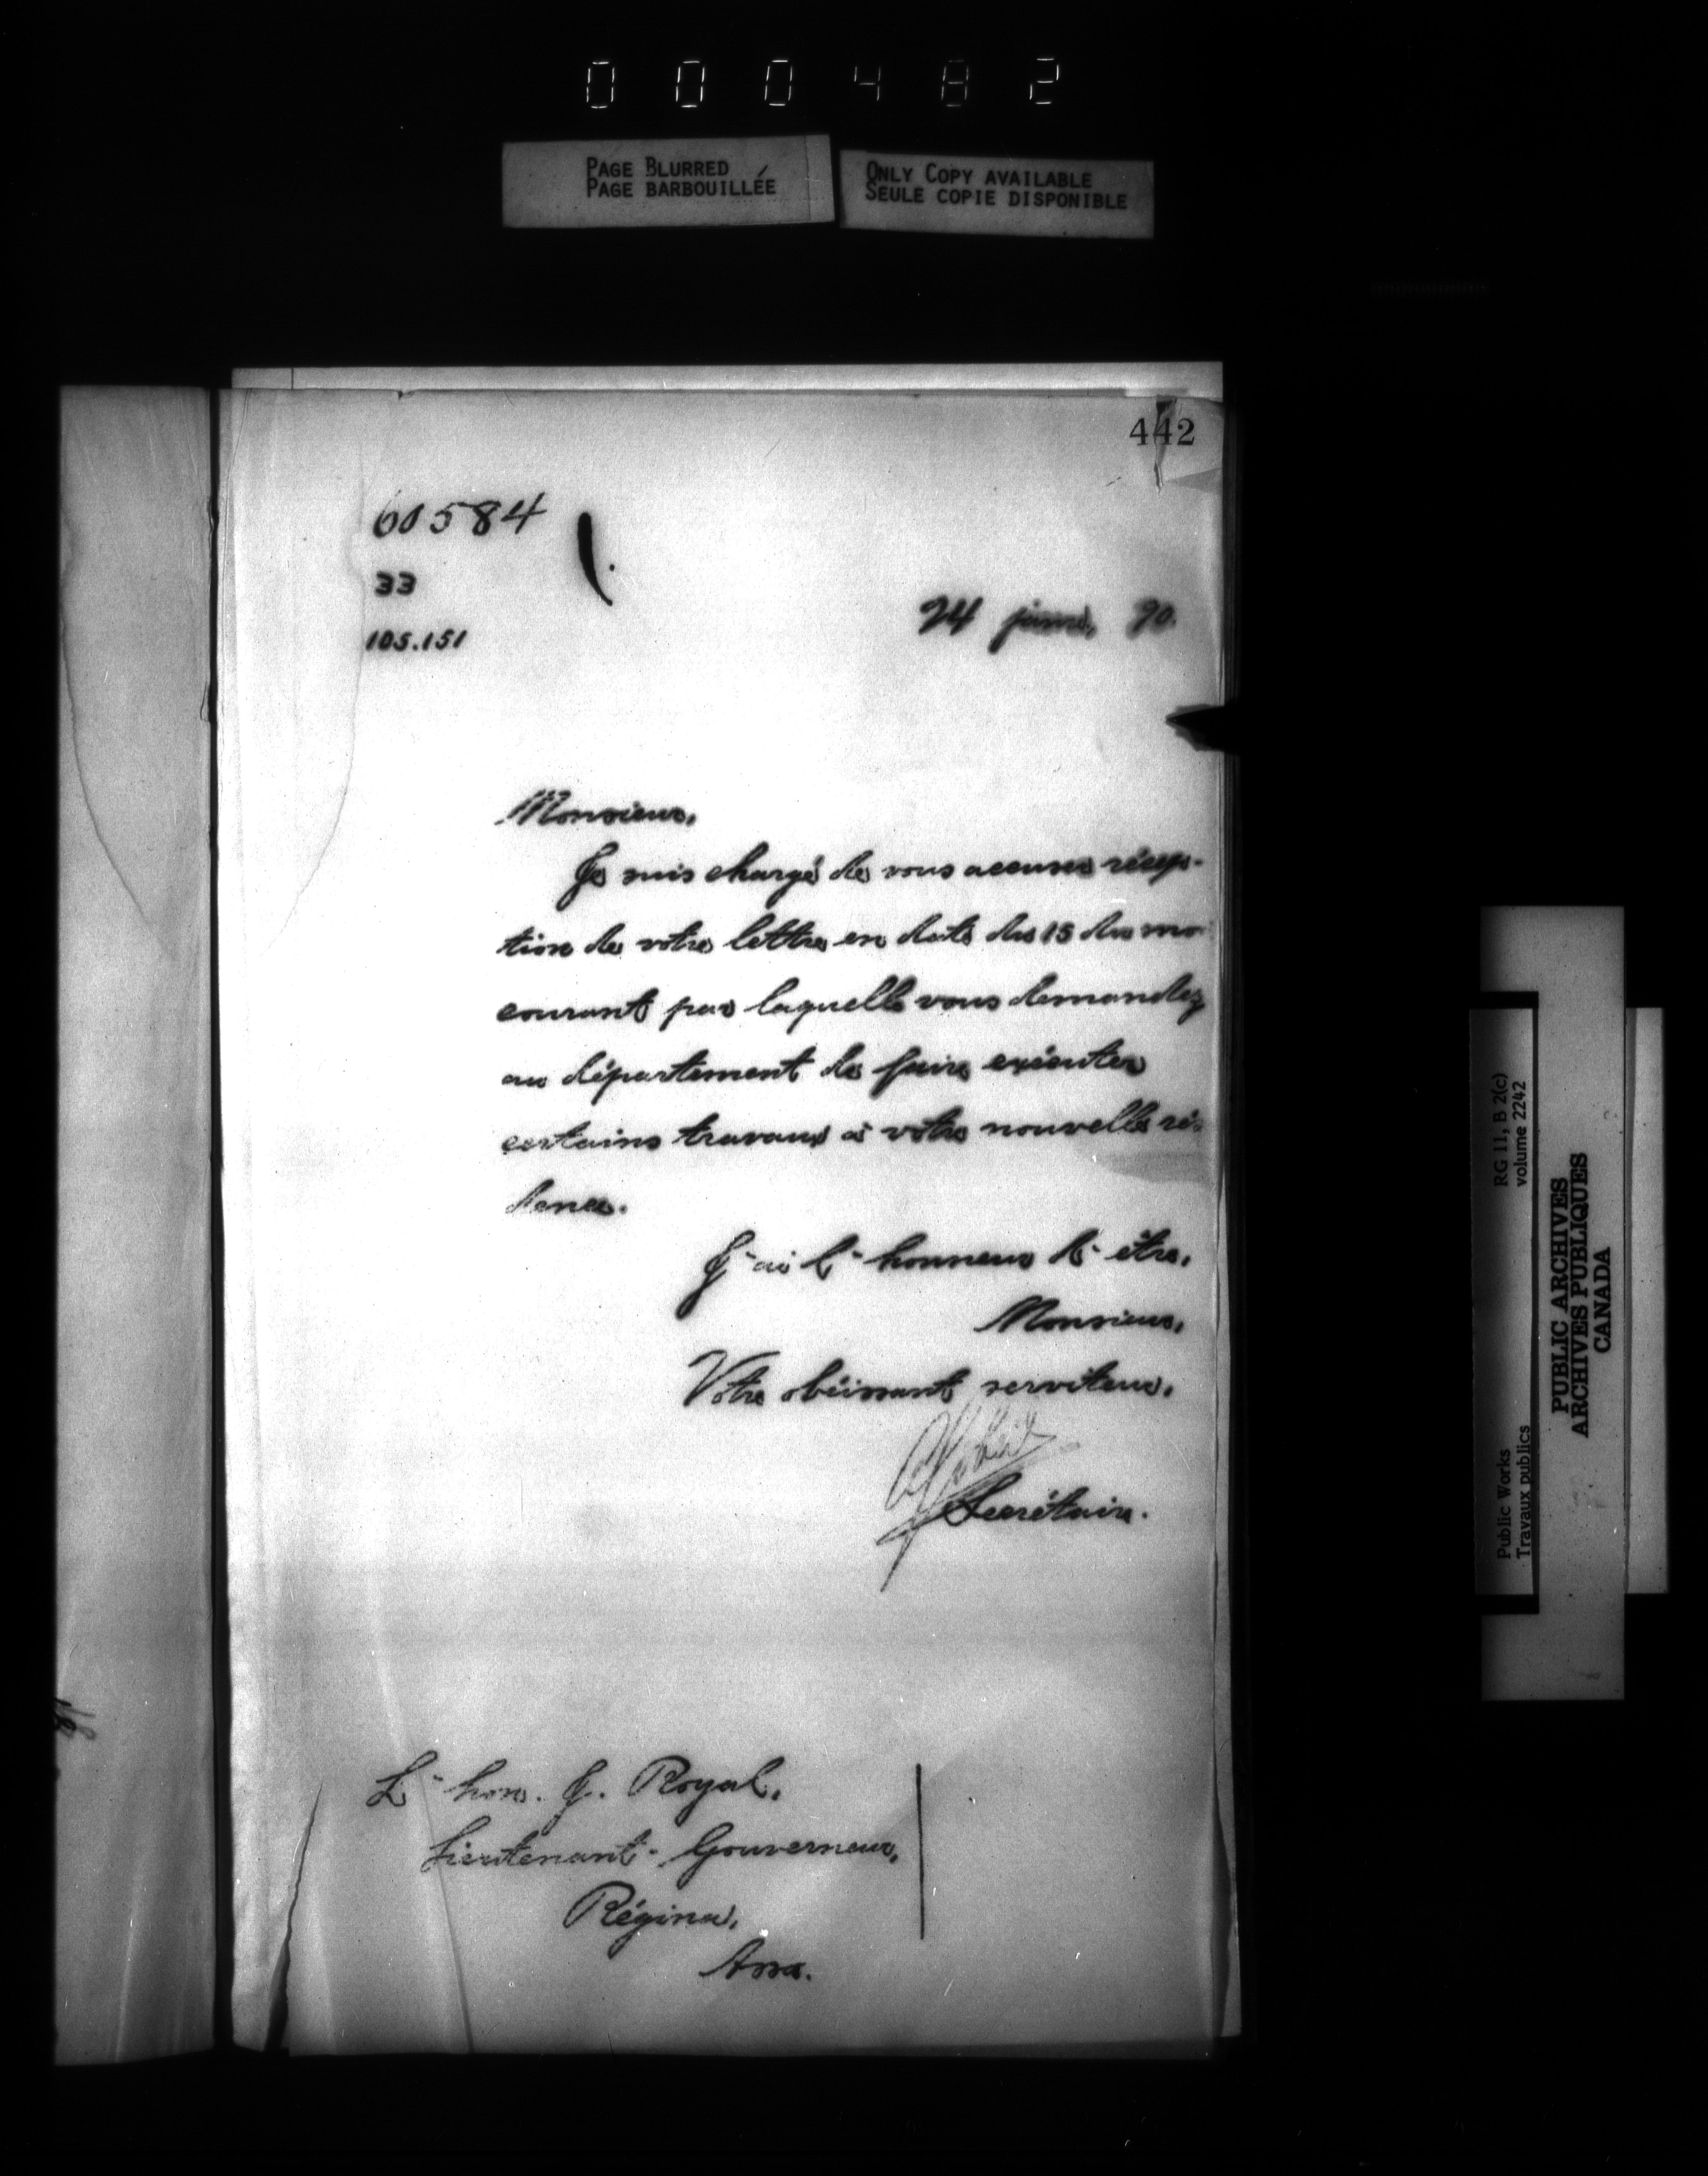 000482
PAGE BLURRED
PAGE BARBOUILLÉE
ONLY COPY AVAILABLE
SEULE COPIE DISPONIBLE
442
60584
33
105.151
24 90.
Monsieur,
Je suis chargé de vous accuser récep-
tion de votre lettre en date du 15 du mo
courant par laquelle vous demandez
au département de faire exécuter
certains travaux à votre nouvelle rési
dence.
J'ai l'honneur d'être,
Monsieur,
Votre obéissant serviteur,
Secrétaire.
L'hon. J. Royal,
Lieutenant-Gouverneur,
Régina,
Assa.
RG 11, B 2(c)
volume 2242
Public Works
Travaux publics
PUBLIC ARCHIVES
ARCHIVES PUBLIQUES
CANADA